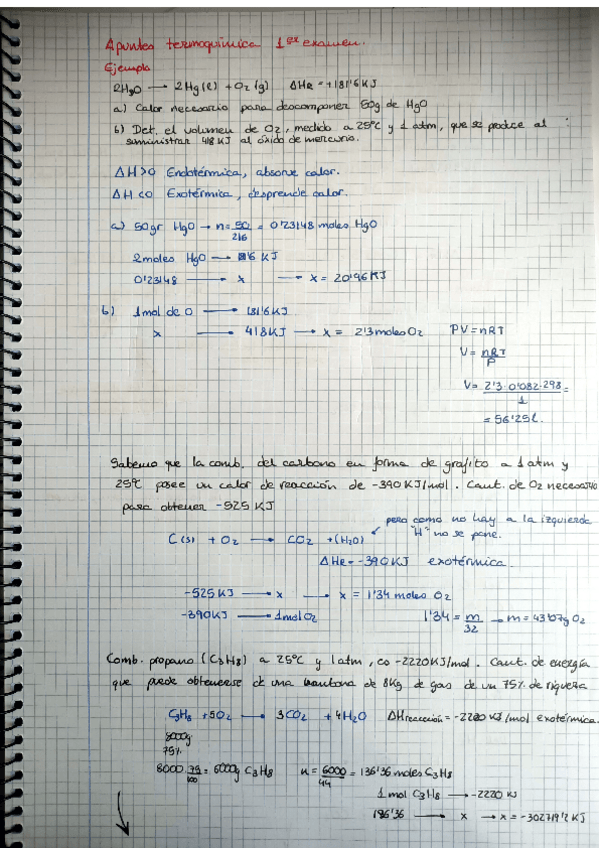 Apuntes termoquímica 1er examen.
Ejemplo
2HgO → 2Hg(l) + O2(g) ΔHR = +181'6 KJ
a) Calor necesario para descomponer 50g de HgO
b) Det. el volumen de O2, medido a 25ºC y 1 atm, que se produce al
suministrar 418 KJ al óxido de mercurio.
ΔH>0 Endotérmica, absorve calor.
ΔH<0 Exotérmica, desprende calor.
a) 50gr HgO → n = 50/216 = 0'23148 moles HgO
2 moles HgO → 6 KJ
0'23148 → x → x = 20'96 KJ
b) 1 mol de O → 181'6 KJ
x → 418 KJ → x = 2'3 moles O2
PV = nRT
V = nRT/P
V = 2'3·0'082·298/1 =
= 56'25 l.
Sabemo que la comb. del carbono en forma de grafito a 1 atm y
25ºC posee un calor de reacción de -390 KJ/mol. Cant. de O2 necesario
para obtener -525 KJ
pero como no hay a la izquierda
"H" no se pone.
C(s) + O2 → CO2 + (H2O)
ΔHR = -390 KJ exotérmica.
-525 KJ → x → x = 1'34 moles O2
-390 KJ → 1 mol O2
1'34 = m/32 → m = 43'07g O2
Comb. propano (C3H8) a 25ºC y 1 atm, co -2220 KJ/mol. Cant. de energía
que puede obtenerse de una de 8Kg de gas de un 75% de riqueza
C3H8 + 5O2 → 3CO2 + 4H2O ΔHreacción = -2220 KJ/mol exotérmica.
8000g
75%
8000·75/100 = 6000g C3H8 n = 6000/44 = 136'36 moles C3H8
1 mol C3H8 → -2220 KJ
136'36 → x → x = -302719'2 KJ